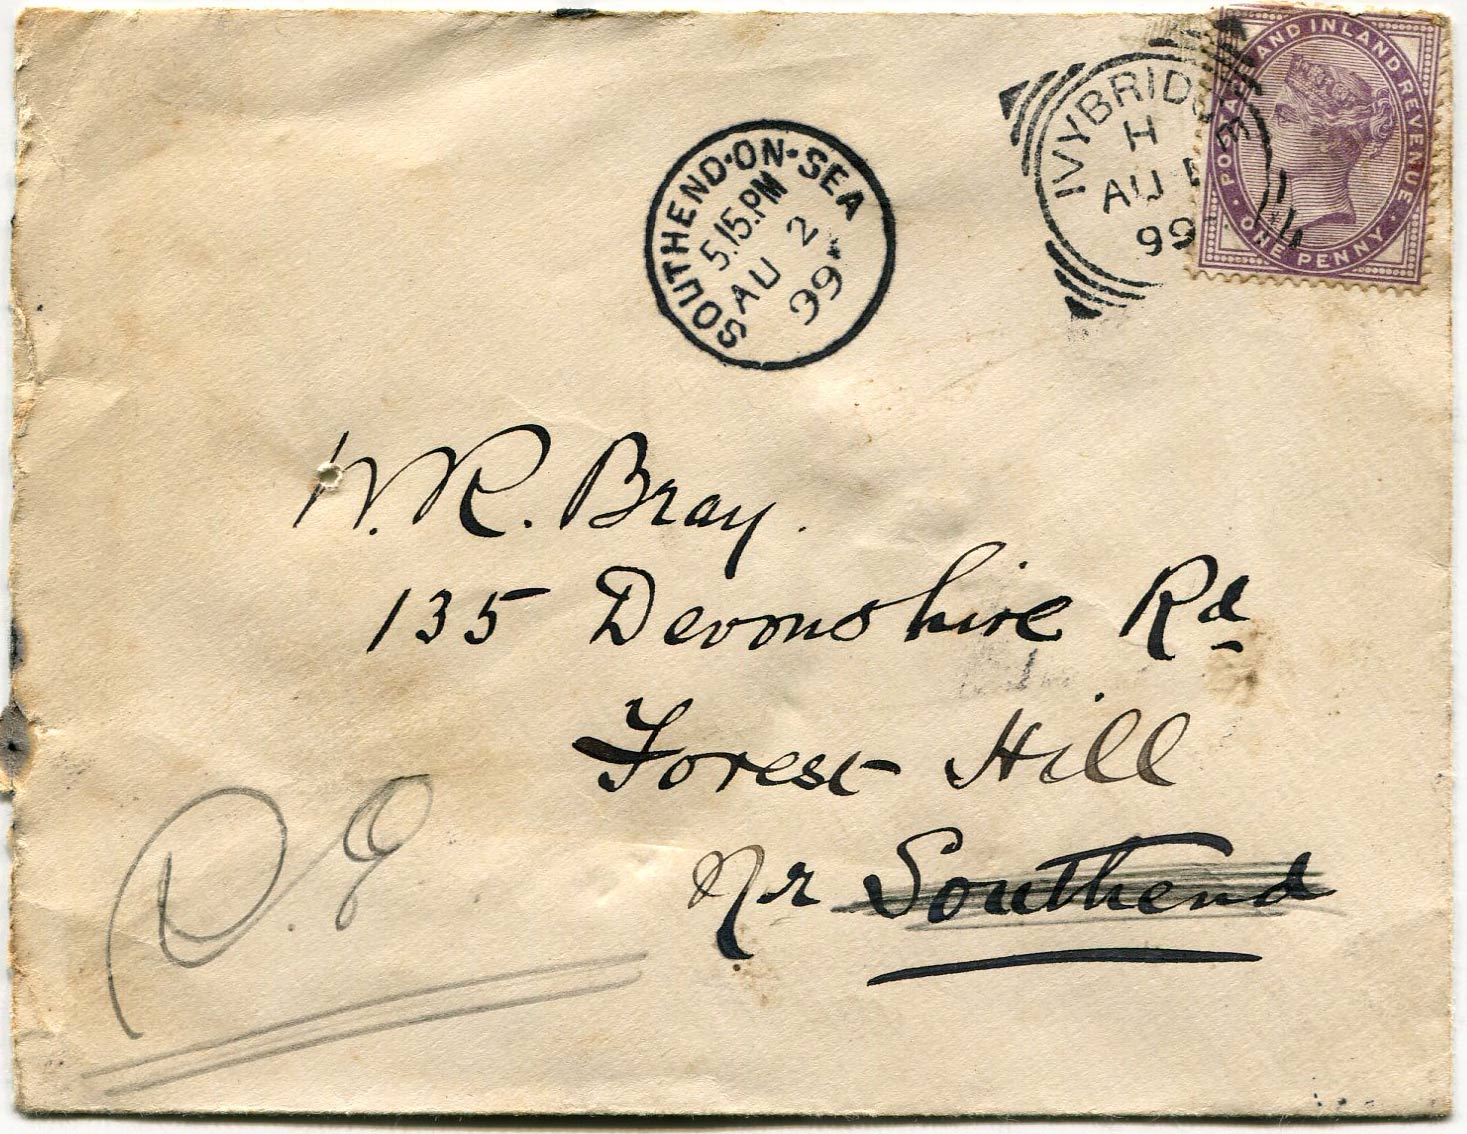 POSTAGE AND INLAND REVENUE
ONE PENNY
IVYBRIDGE
H
AU
99
SOUTHEND·ON·SEA
5.15.PM
AU 2
99
W.R. Bray.
135 Devonshire Rd
Forest Hill
Nr Southend